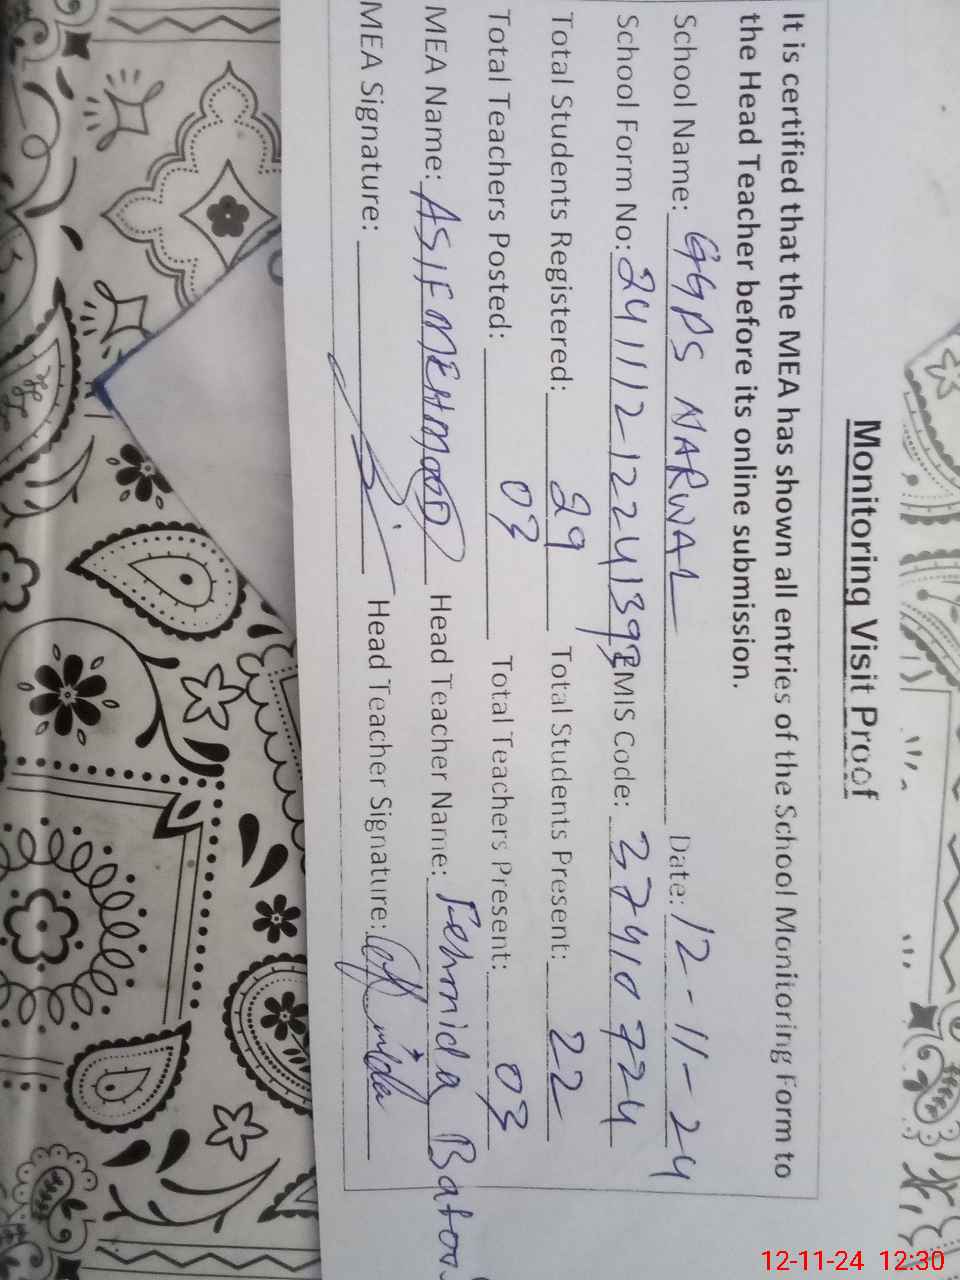 Monitoring Visit Proof
It is certified that the MEA has shown all entries of the School Monitoring Form to
the Head Teacher before its online submission.
School Name: GGPS NARWAL Date: 12-11-24
School Form No: 241112122413 EMIS Code: 37410724
Total Students Registered: 29 Total Students Present: 22
Total Teachers Posted: 03 Total Teachers Present: 03
MEA Name: ASIF MEHMOOD Head Teacher Name: Fehmida
MEA Signature: Head Teacher Signature:
12-11-24 12:30